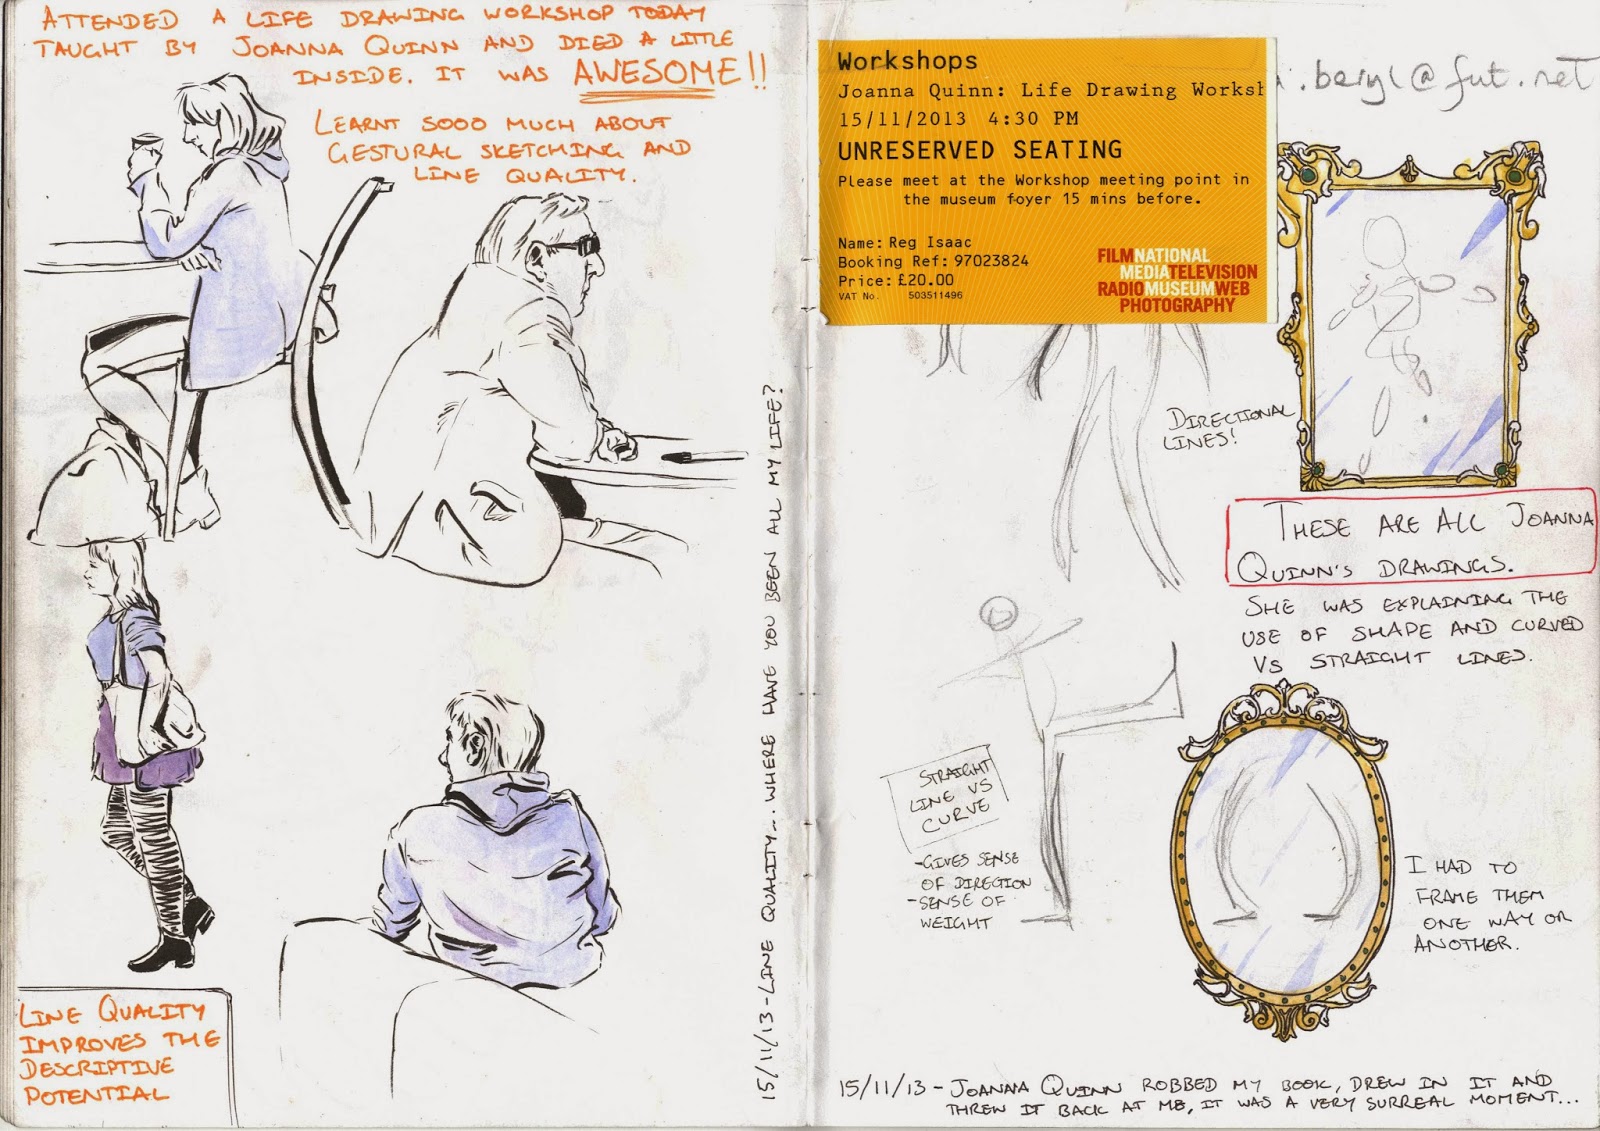 ATTENDED A LIFE DRAWING WORKSHOP TODAY
TAUGHT BY JOANNA QUINN AND DIED A LITTLE
INSIDE. IT WAS AWESOME!!
LEARNT SOOO MUCH ABOUT
GESTURAL SKETCHING AND
LINE QUALITY.
LINE QUALITY
IMPROVES THE
DESCRIPTIVE
POTENTIAL
15/11/13 - LINE QUALITY... WHERE HAVE YOU BEEN ALL MY LIFE?
Workshops
Joanna Quinn: Life Drawing Worksh
15/11/2013 4:30 PM
UNRESERVED SEATING
Please meet at the Workshop meeting point in
the museum foyer 15 mins before.
Name: Reg Isaac
Booking Ref: 97023824
Price: £20.00
VAT No. 503511496
FILMNATIONAL
MEDIATELEVISION
RADIOMUSEUMWEB
PHOTOGRAPHY
.beryl@fut.net
DIRECTIONAL
LINES!
THESE ARE ALL JOANNA
QUINN'S DRAWINGS.
SHE WAS EXPLAINING THE
USE OF SHAPE AND CURVED
VS STRAIGHT LINES.
STRAIGHT
LINE VS
CURVE
- GIVES SENSE
OF DIRECTION
- SENSE OF
WEIGHT
I HAD TO
FRAME THEM
ONE WAY OR
ANOTHER.
15/11/13 - JOANNA QUINN ROBBED MY BOOK, DREW IN IT AND
THREW IT BACK AT ME, IT WAS A VERY SURREAL MOMENT...